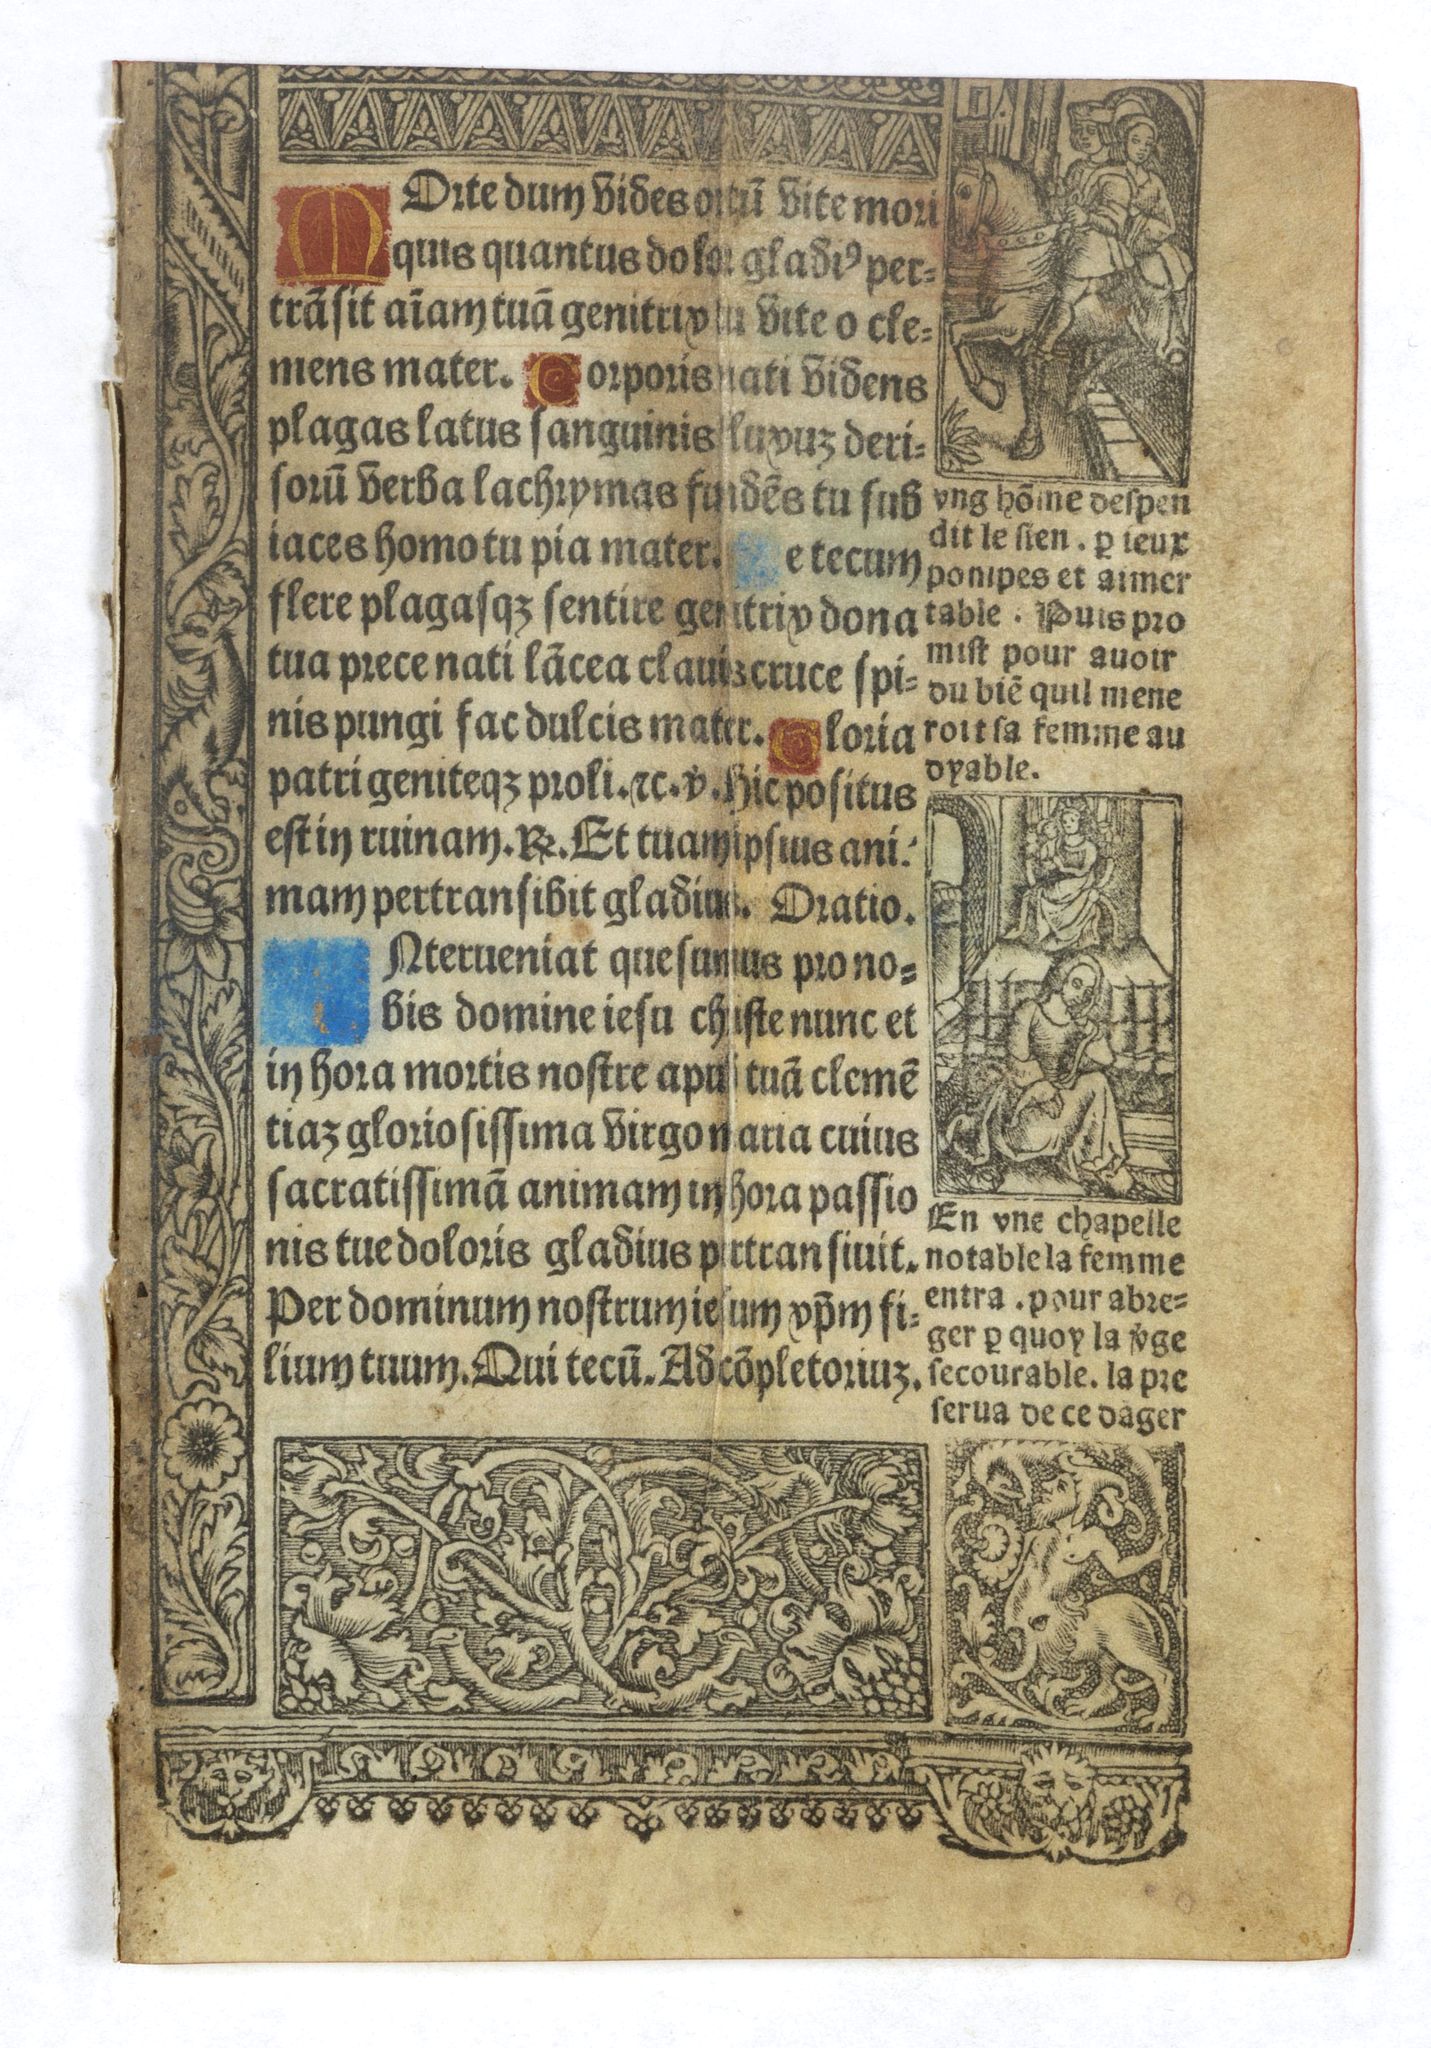 MOrte dum vides ortū vite mori
quis quantus dolor gladi⁹ per-
trāsit aīam tuā genitrix tu vite o cle-
mens mater. Corporis nati videns
plagas latus sanguinis fluxuꝫ deri-
sorū verba lachrymas fundēs tu sub
iaces homo tu pia mater. Me tecum
flere plagasqꝫ sentire genitrix dona
tua prece nati lācea clauis cruce spi-
nis pungi fac dulcis mater. Gloria
patri geniteqꝫ proli. ⁊c. v̇. Hic positus
est in ruinam. ℞. Et tuam ipsius ani-
mam pertransibit gladius. Oratio.
INterueniat quesumus pro no-
bis domine iesu christe nunc et
in hora mortis nostre apud tuā clemē
tiaꝫ gloriosissima virgo maria cuius
sacratissimā animam in hora passio
nis tue doloris gladius pertransiuit.
Per dominum nostrum iesum xp̄m fi-
lium tuum. Qui tecū. Ad cōpletoriuꝫ.
vng hōme despen
dit le sien. ꝑ ieux
pompes et aimer
table. Puis pro
mist pour auoir
du biē quil mene
roit sa femme au
dyable.
En vne chapelle
notable la femme
entra. pour abre-
ger ꝑ quoy la v̇ge
secourable. la pre
serua de ce dāger